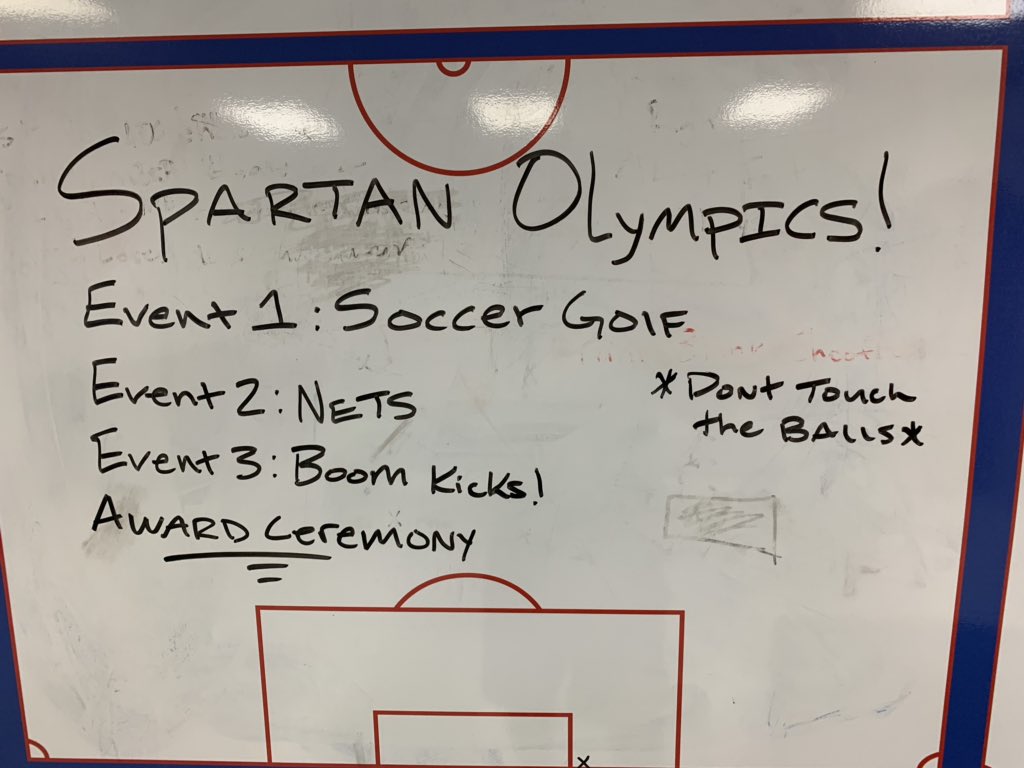 SPARTAN OLYMPICS!
Event 1: Soccer GOlF
Event 2: NETS
Event 3: Boom Kicks!
AWARD CeremONY
* Dont Touch
the BALLS *
x